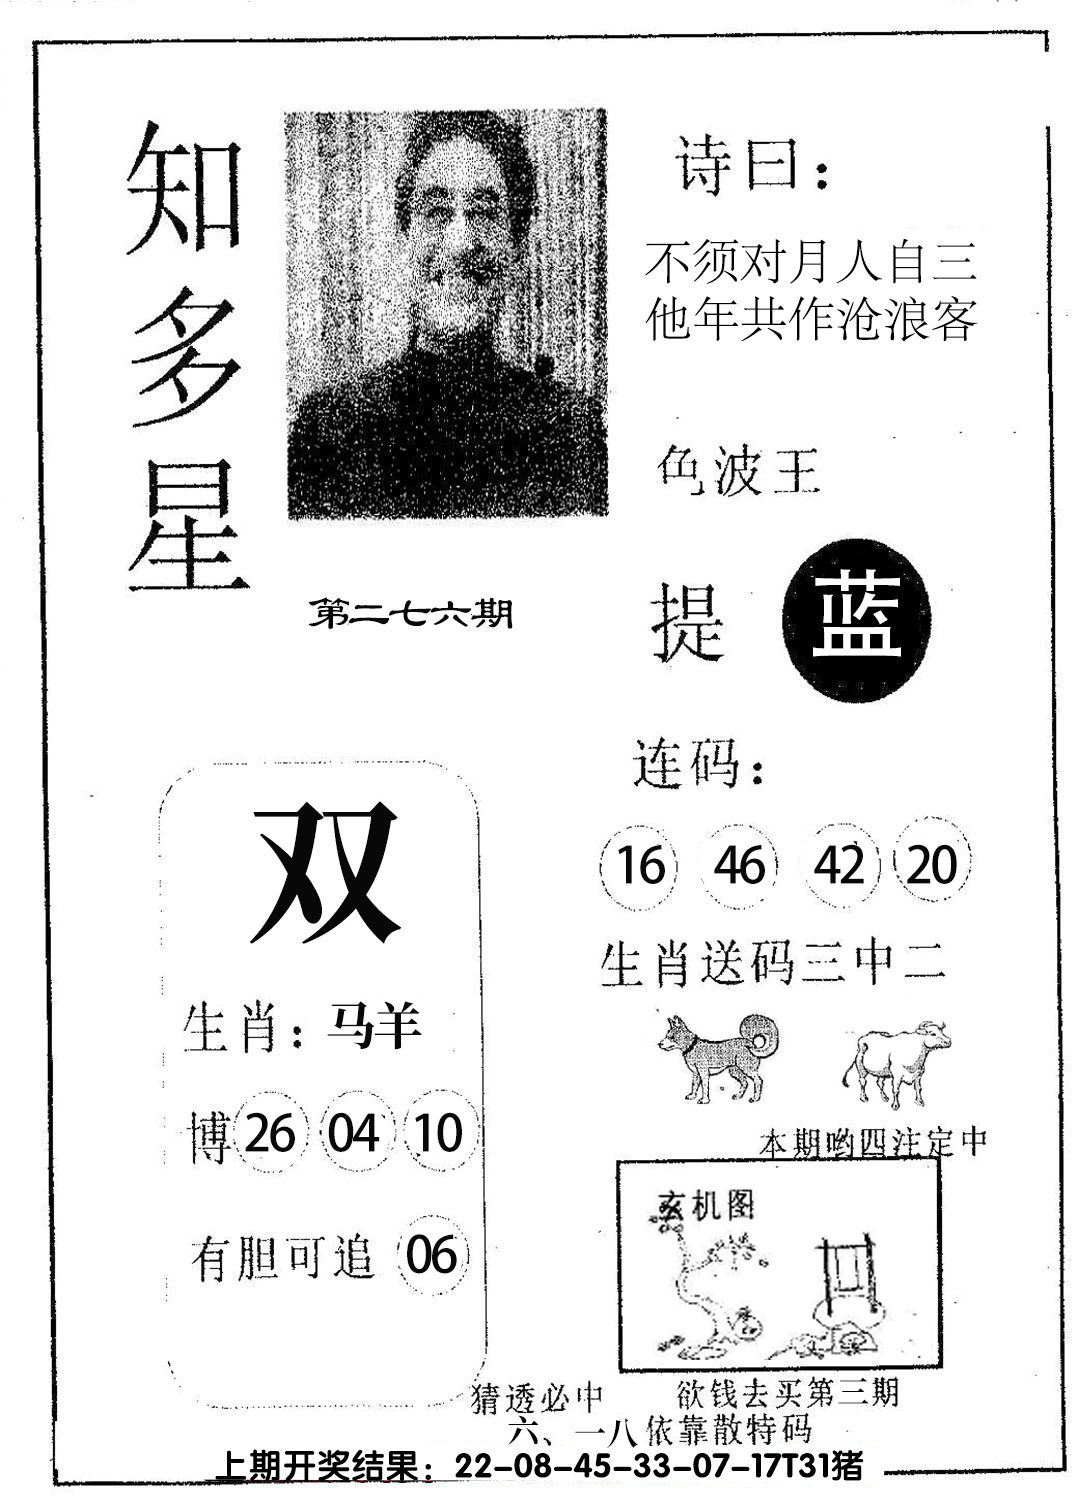 知多星
诗曰：
不须对月人自三
他年共作沧浪客
色波王
第二七六期
提 蓝
连码：
16 46 42 20
双
生肖送码三中二
生肖：马羊
博 26 04 10
本期哟四注定中
玄机图
有胆可追 06
猜透必中 欲钱去买第三期
六、一八依靠散特码
上期开奖结果：22-08-45-33-07-17T31猪